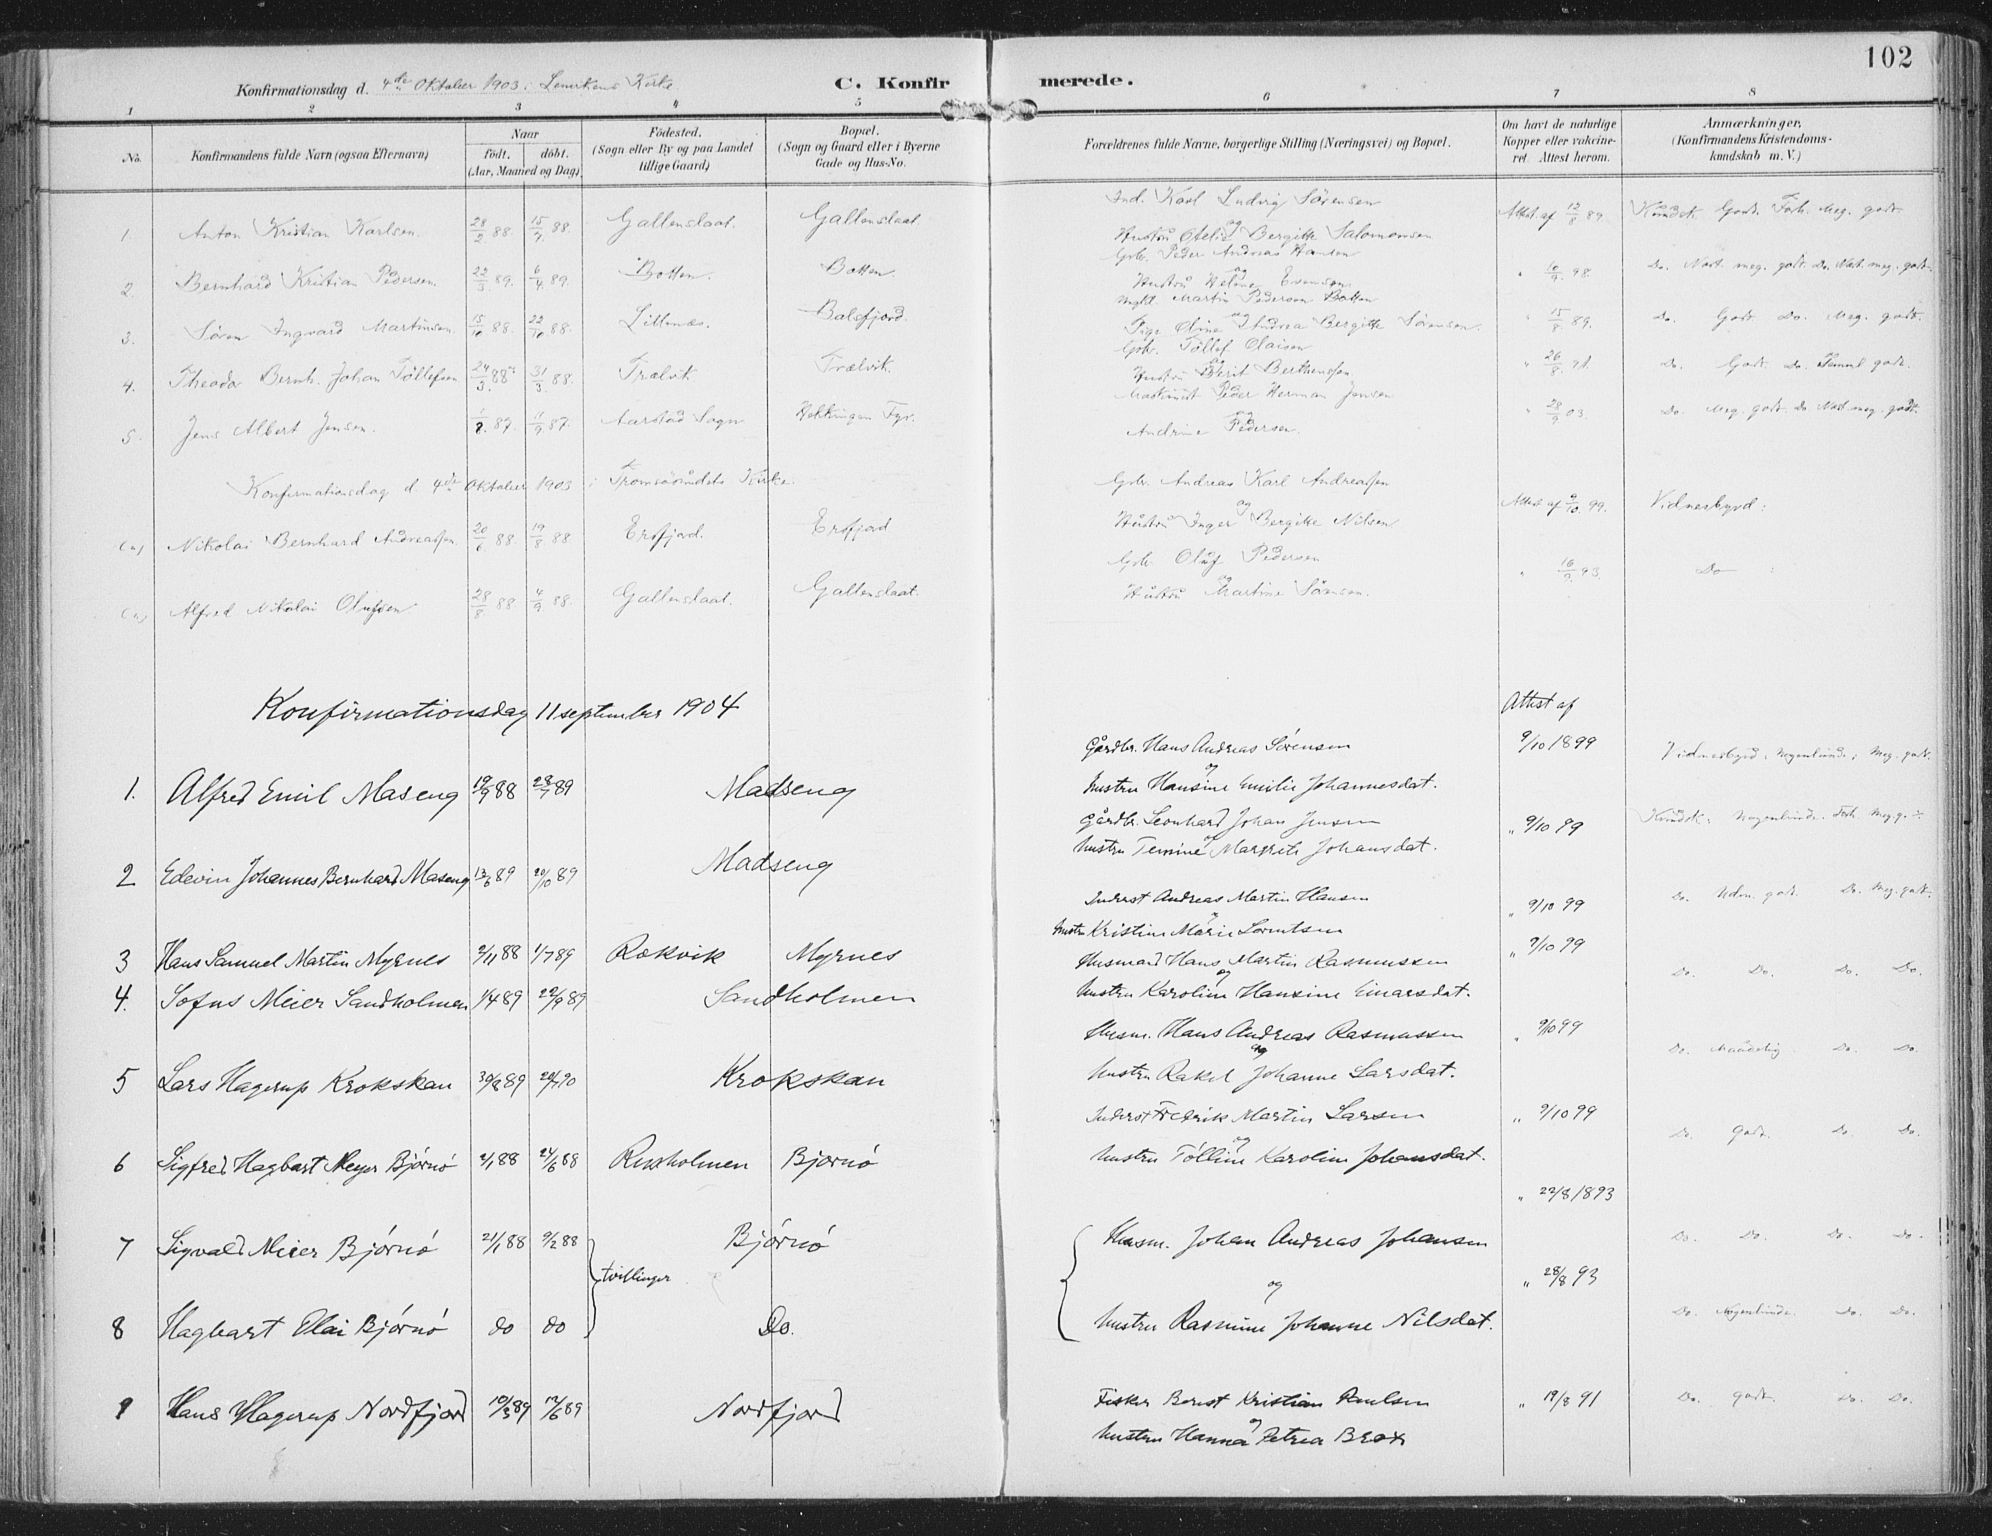 102
Konfirmationsdag d. 4de Oktober 1903 i Lenvikens Kirke
C. Konfirmerede.
1 2 3 4 5 6 7 8
No. Konfirmandens fulde Navn (ogsaa Efternavn) Naar født. døbt. (Aar, Maaned og Dag). Fødested. (Sogn eller By og paa Landet tillige Gaard) Bopæl. (Sogn og Gaard eller i Byerne Gade og Hus-No. Forældrenes fulde Navne, borgerlige Stilling (Næringsvei) og Bopæl. Om havt de naturlige Kopper eller vakcineret. Attest herom. Anmærkninger. (Konfirmandens Kristendomskundskab m. V.)
Ind. Karl Ludvig Sørensen
1. Anton Kristian Karlsen. 28/2 88 15/7 88. Gallenslaat. Gallenslaat og Attest af 12/8 89. Kundsk. Godt. Foh. Meg. godt.
Hustru Otelie Bergitte Salomonsen
Gbr. Peder Andreas Hansen
2. Bernhard Kristian Pedersen 22/3 89. 6/4 89. Botten. Botten og " 10/9 98. Do. Næst. meg. godt. Do. Næst. meg. godt.
Hustru Helene Evensen
Ungkl. Martin Pedersen Botten
3. Søren Ingvard Martinsen 15/10 88. 22/10 88. Lillenes. Balsfjord. og " 15/8 89. Do. Godt Do. Meg. godt.
Pige Oline Andrea Bergitte Sørensen.
Gbr. Tøllef Olaisen
4. Theodor Bernh. Johan Tøllefsen 24/3 88 31/3 88. Trælvik Trælvik. og " 26/8 91. Do. Godt. Do. Temml. godt.
Hustru Berit Berthensen
Maskinist Peder Herman Jensen
5. Jens Albert Jensen. 1/8 87. 11/9 87. Aarstad Sogn Hekkingen Fyr. og " 28/9 03. Do. Meg. godt. Do. Næst meg. godt.
Andrine Pedersen.
Konfirmationsdag d. 4de Oktober 1903 i Tromsøsundets Kirke.
Gbr. Andreas Karl Andreassen
Nikolai Bernhard Andreassen. 20/6 88. 19/8 88 Ersfjord. Ersfjord og Attest af 9/10 99. Vidnesbyrd:
Hustru Inger Bergitte Nilsen
Gbr. Oluf Pedersen
Alfred Nikolai Olufsen. 28/8 88 4/9 88. Gallenslaat. Gallenslaat. og " 16/9 93. Do
Hustru Martine Sørensen.
Konfirmationsdag 11 september 1904 Attest af
Gårdbr. Hans Andreas Sørensen 9/10 1899 Vidnesbyrd: Nogenlunde; Meg. godt.
1. Alfred Emil Maseng 19/9 88 28/7 89 Madseng og
Hustru Hansine Emilie Johannesdat.
Gårdbr. Leonhard Johan Jensen " 9/10 99 Kundsk: Nogenlunde. Foh. Meg. g.
2 Edevin Johannes Bernhard Maseng 13/6 89 20/10 89 Madseng og
hustru Temine Margrete Johansdat.
Inderst Andreas Martin Hansen " 9/10 99 Do. Udm. godt. Do. Meg. godt.
3 Hans Samuel Martin Myrnes 2/11 88 1/7 89 Rækvik Myrnes og
Hustru Kristine Marie Lorentsen
Husmand Hans Martin Rasmussen " 9/10 99 Do. Do. Do. Do.
4. Sofus Meier Sandholmen 1/4 89 22/9 89 Sandholmen og
hustru Karoline Hansine Einarsdat.
Husm. Hans Andreas Rasmussen " 9/10 99 Do. Maadelig Do. Do.
5 Lars Hagerup Krokskar 30/8 89 20/7 90 Krokskar og
hustru Rakel Johanne Larsdat.
Inderst Fredrik Martin Larsen " 9/10 99 Do. Godt. Do. Do.
6 Sigfred Hagbart Meyer Bjørnø 2/1 88 24/6 88 Rusholmen Bjørnø og
hustru Tølline Karoline Johansdat.
" 22/8 1893
7 Sigvald Meier Bjørnø 21/1 88 9/2 88 Bjørnø Husm. Johan Andreas Johansen Do. Do. Do. Do.
tvillinger og " 28/8 93
8 Hagbart Olai Bjørnø do do Do. hustru Rasmine Johanne Nilsdat. Do. Nogenlunde. Do. Do.
9 Hans Hagerup Nordfjord 10/3 89 12/6 89 Nordfjord Fisker Bernt Kristian Paulsen " 19/8 91 Do. godt. Do. Do.
og
hustru Hanna Petrea Brox